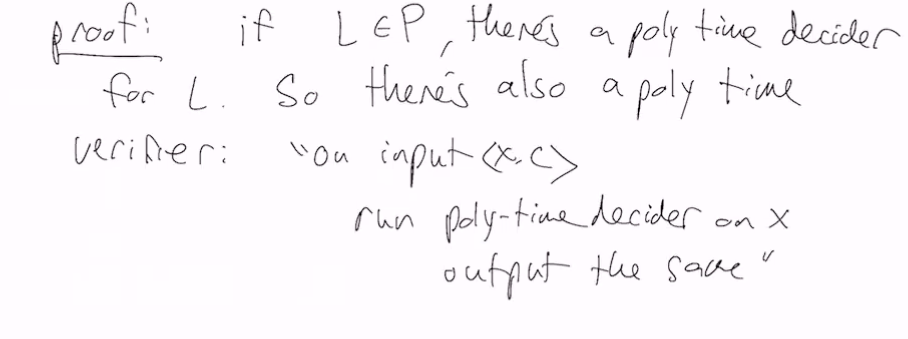 proof: if L ∈ P, there's a poly time decider
for L. So there's also a poly time
verifier: "on input <x, c>
run poly-time decider on x
output the same"